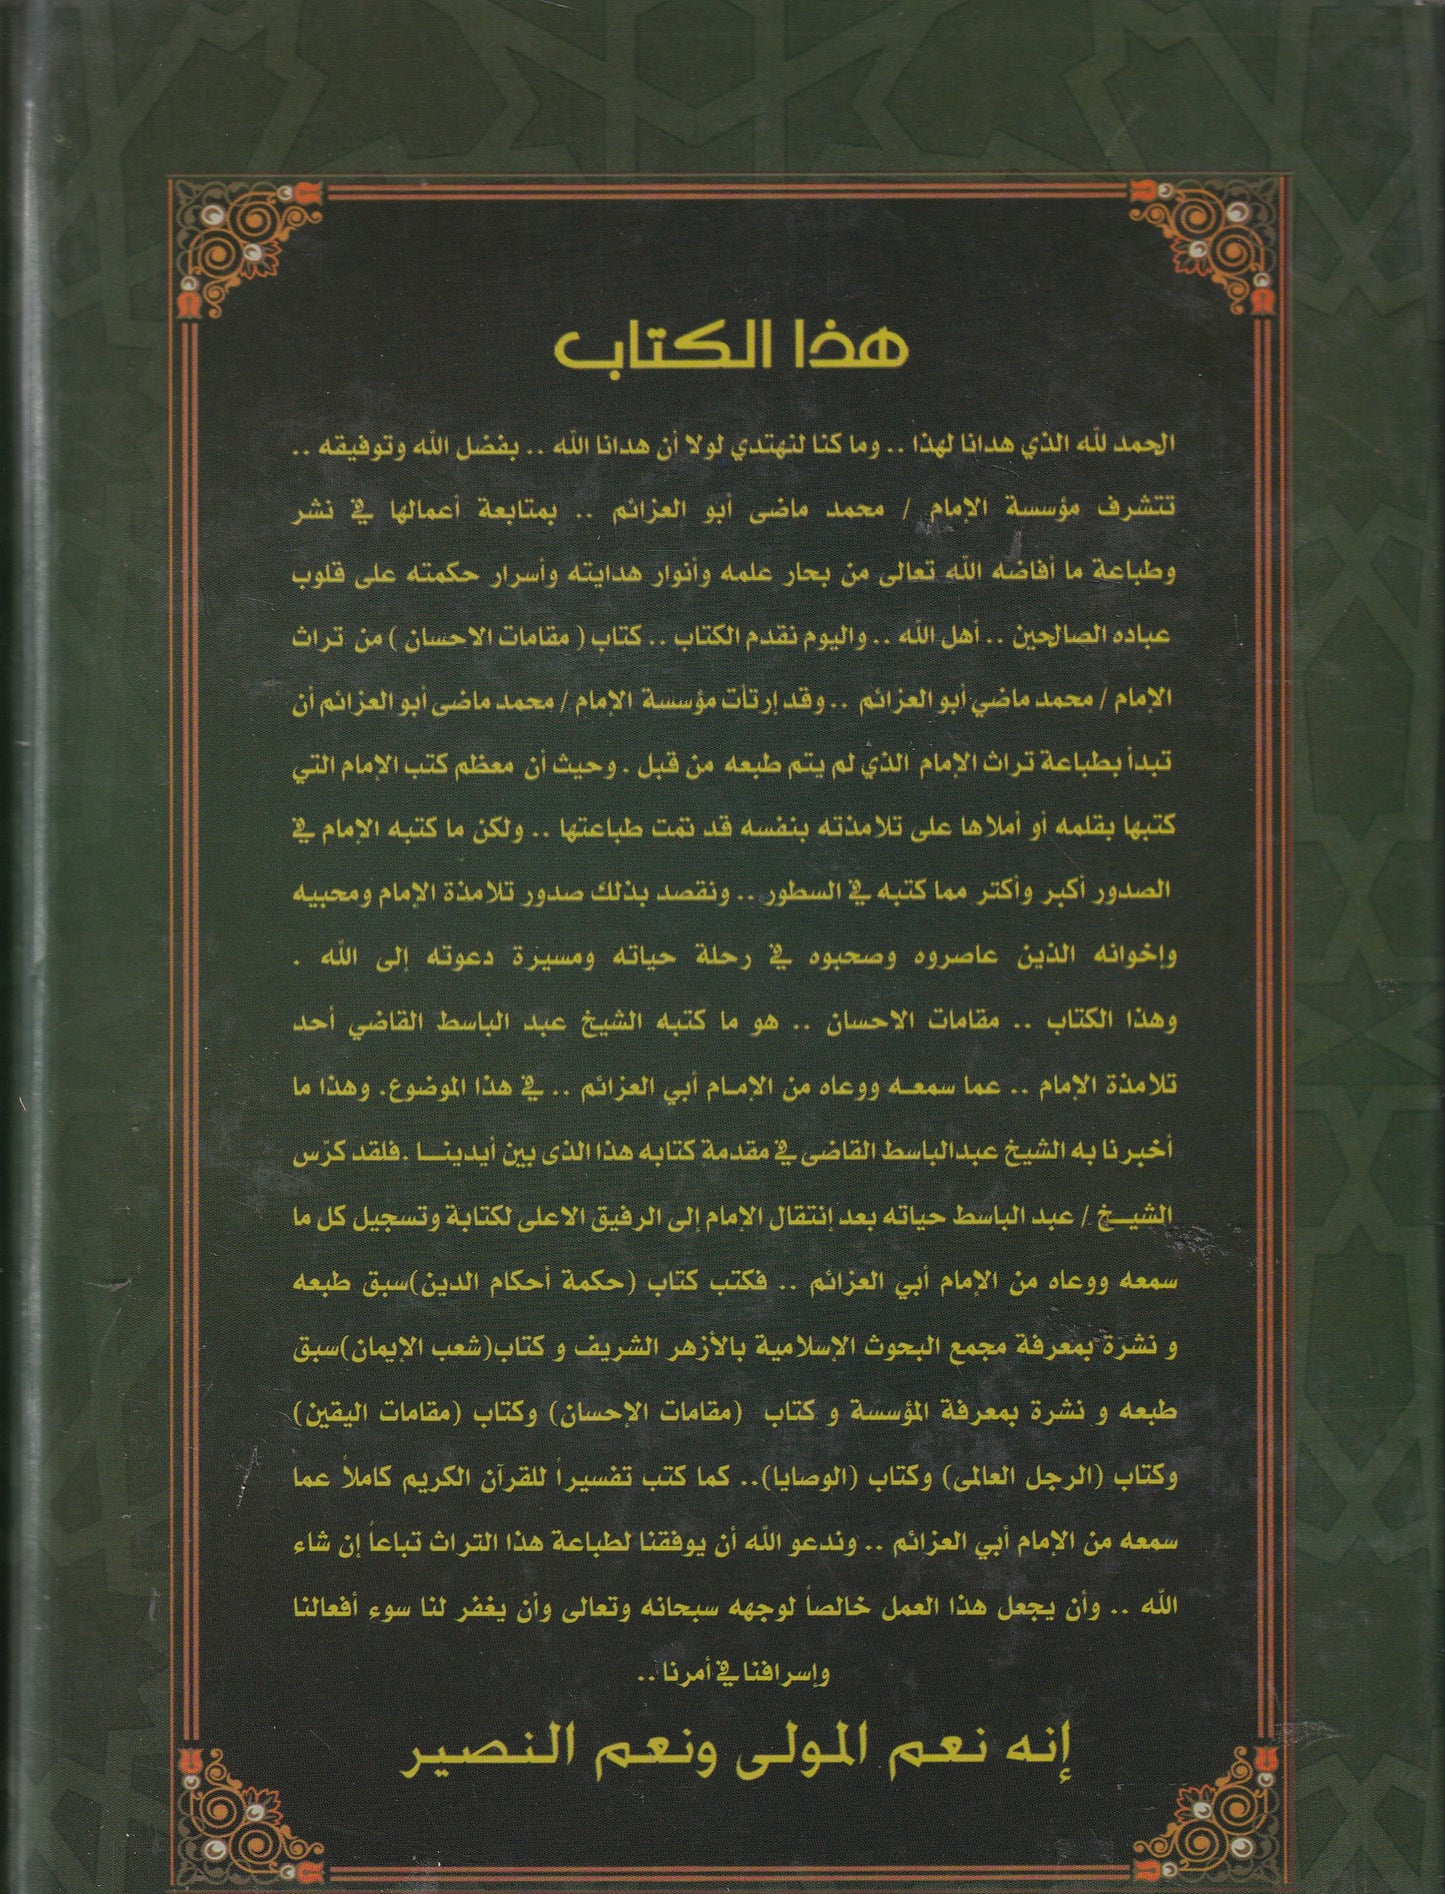 هذا الكتاب
الحمد لله الذي هدانا لهذا .. وما كنا لنهتدي لولا أن هدانا الله .. بفضل الله وتوفيقه ..
تتشرف مؤسسة الإمام / محمد ماضى أبو العزائم .. بمتابعة أعمالها في نشر
وطباعة ما أفاضه الله تعالى من بحار علمه وأنوار هدايته وأسرار حكمته على قلوب
عباده الصالحين .. أهل الله .. واليوم نقدم الكتاب .. كتاب ( مقامات الاحسان ) من تراث
الإمام / محمد ماضي أبو العزائم .. وقد إرتأت مؤسسة الإمام / محمد ماضى أبو العزائم أن
تبدأ بطباعة تراث الإمام الذي لم يتم طبعه من قبل . وحيث أن معظم كتب الإمام التي
كتبها بقلمه أو أملاها على تلامذته بنفسه قد تمت طباعتها .. ولكن ما كتبه الإمام في
الصدور أكبر وأكتر مما كتبه في السطور .. ونقصد بذلك صدور تلامذة الإمام ومحبيه
وإخوانه الذين عاصروه وصحبوه في رحلة حياته ومسيرة دعوته إلى الله .
وهذا الكتاب .. مقامات الاحسان .. هو ما كتبه الشيخ عبد الباسط القاضي أحد
تلامذة الإمام .. عما سمعه ووعاه من الإمام أبي العزائم .. في هذا الموضوع. وهذا ما
أخبرنا به الشيخ عبدالباسط القاضى في مقدمة كتابه هذا الذى بين أيدينا .فلقد كرّس
الشيخ / عبد الباسط حياته بعد إنتقال الإمام إلى الرفيق الاعلى لكتابة وتسجيل كل ما
سمعه ووعاه من الإمام أبي العزائم .. فكتب كتاب (حكمة أحكام الدين)سبق طبعه
و نشرة بمعرفة مجمع البحوث الإسلامية بالأزهر الشريف و كتاب(شعب الإيمان)سبق
طبعه و نشرة بمعرفة المؤسسة و كتاب (مقامات الإحسان) وكتاب (مقامات اليقين)
وكتاب (الرجل العالمى) وكتاب (الوصايا).. كما كتب تفسيراً للقرآن الكريم كاملاً عما
سمعه من الإمام أبي العزائم .. وندعو الله أن يوفقنا لطباعة هذا التراث تباعاً إن شاء
الله .. وأن يجعل هذا العمل خالصاً لوجهه سبحانه وتعالى وأن يغفر لنا سوء أفعالنا
وإسرافنا في أمرنا ..
إنه نعم المولى ونعم النصير